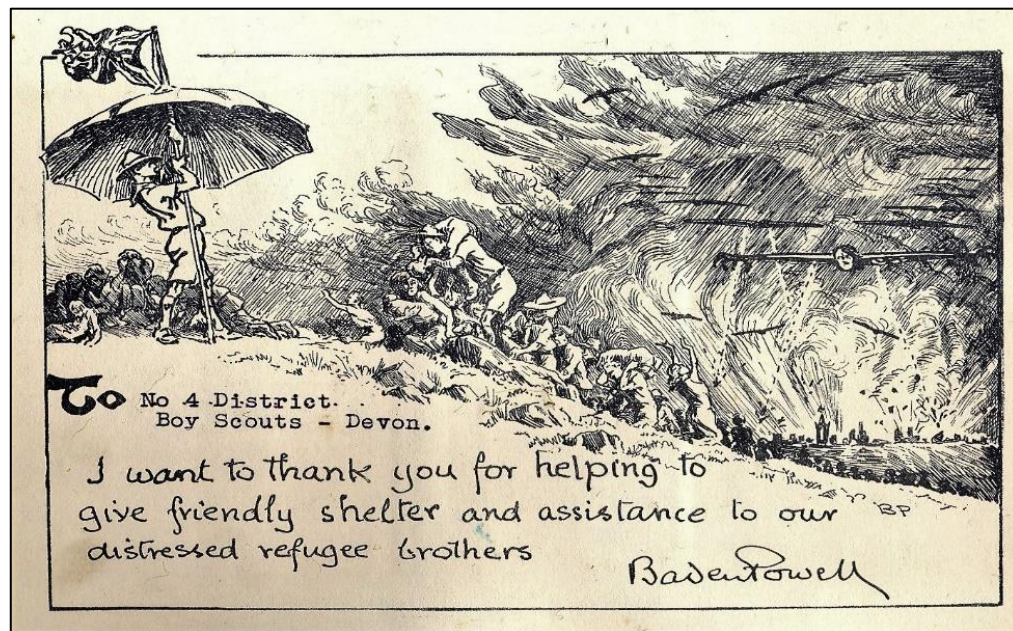 To No 4 District.
Boy Scouts - Devon.
I want to thank you for helping to
give friendly shelter and assistance to our
distressed refugee brothers
BP
Baden Powell